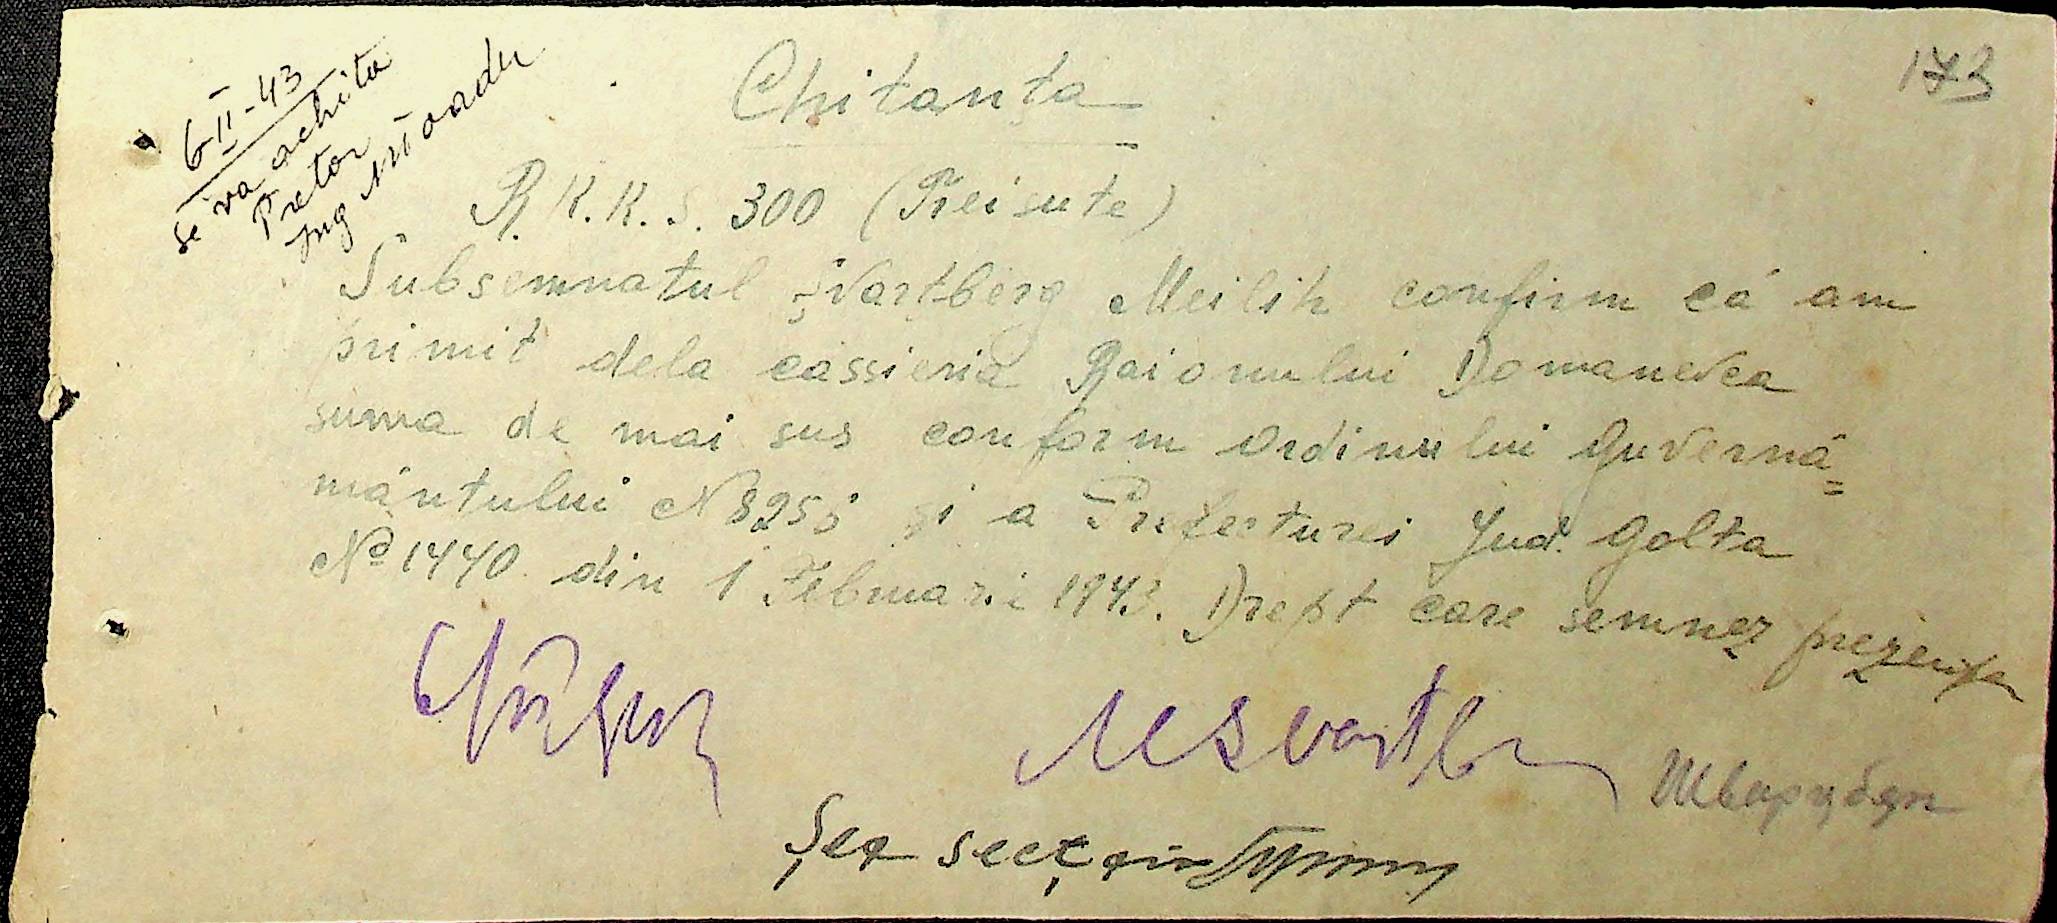 173
6-II-43
se va achita
Pretor
Ing
Chitanța
R.K.K.S. 300 (Trei sute)
Subsemnatul Șvarțberg Meilih confirm că am
primit dela cassieria Raionului Domanevca
suma de mai sus conform ordinului guvernă=
mântului N 8255 și a Prefecturei Jud. Golta
№ 1440 din 1 Februarie 1943. Drept care semnez prezenta
M Svartb
Шварцберг
Șef secț